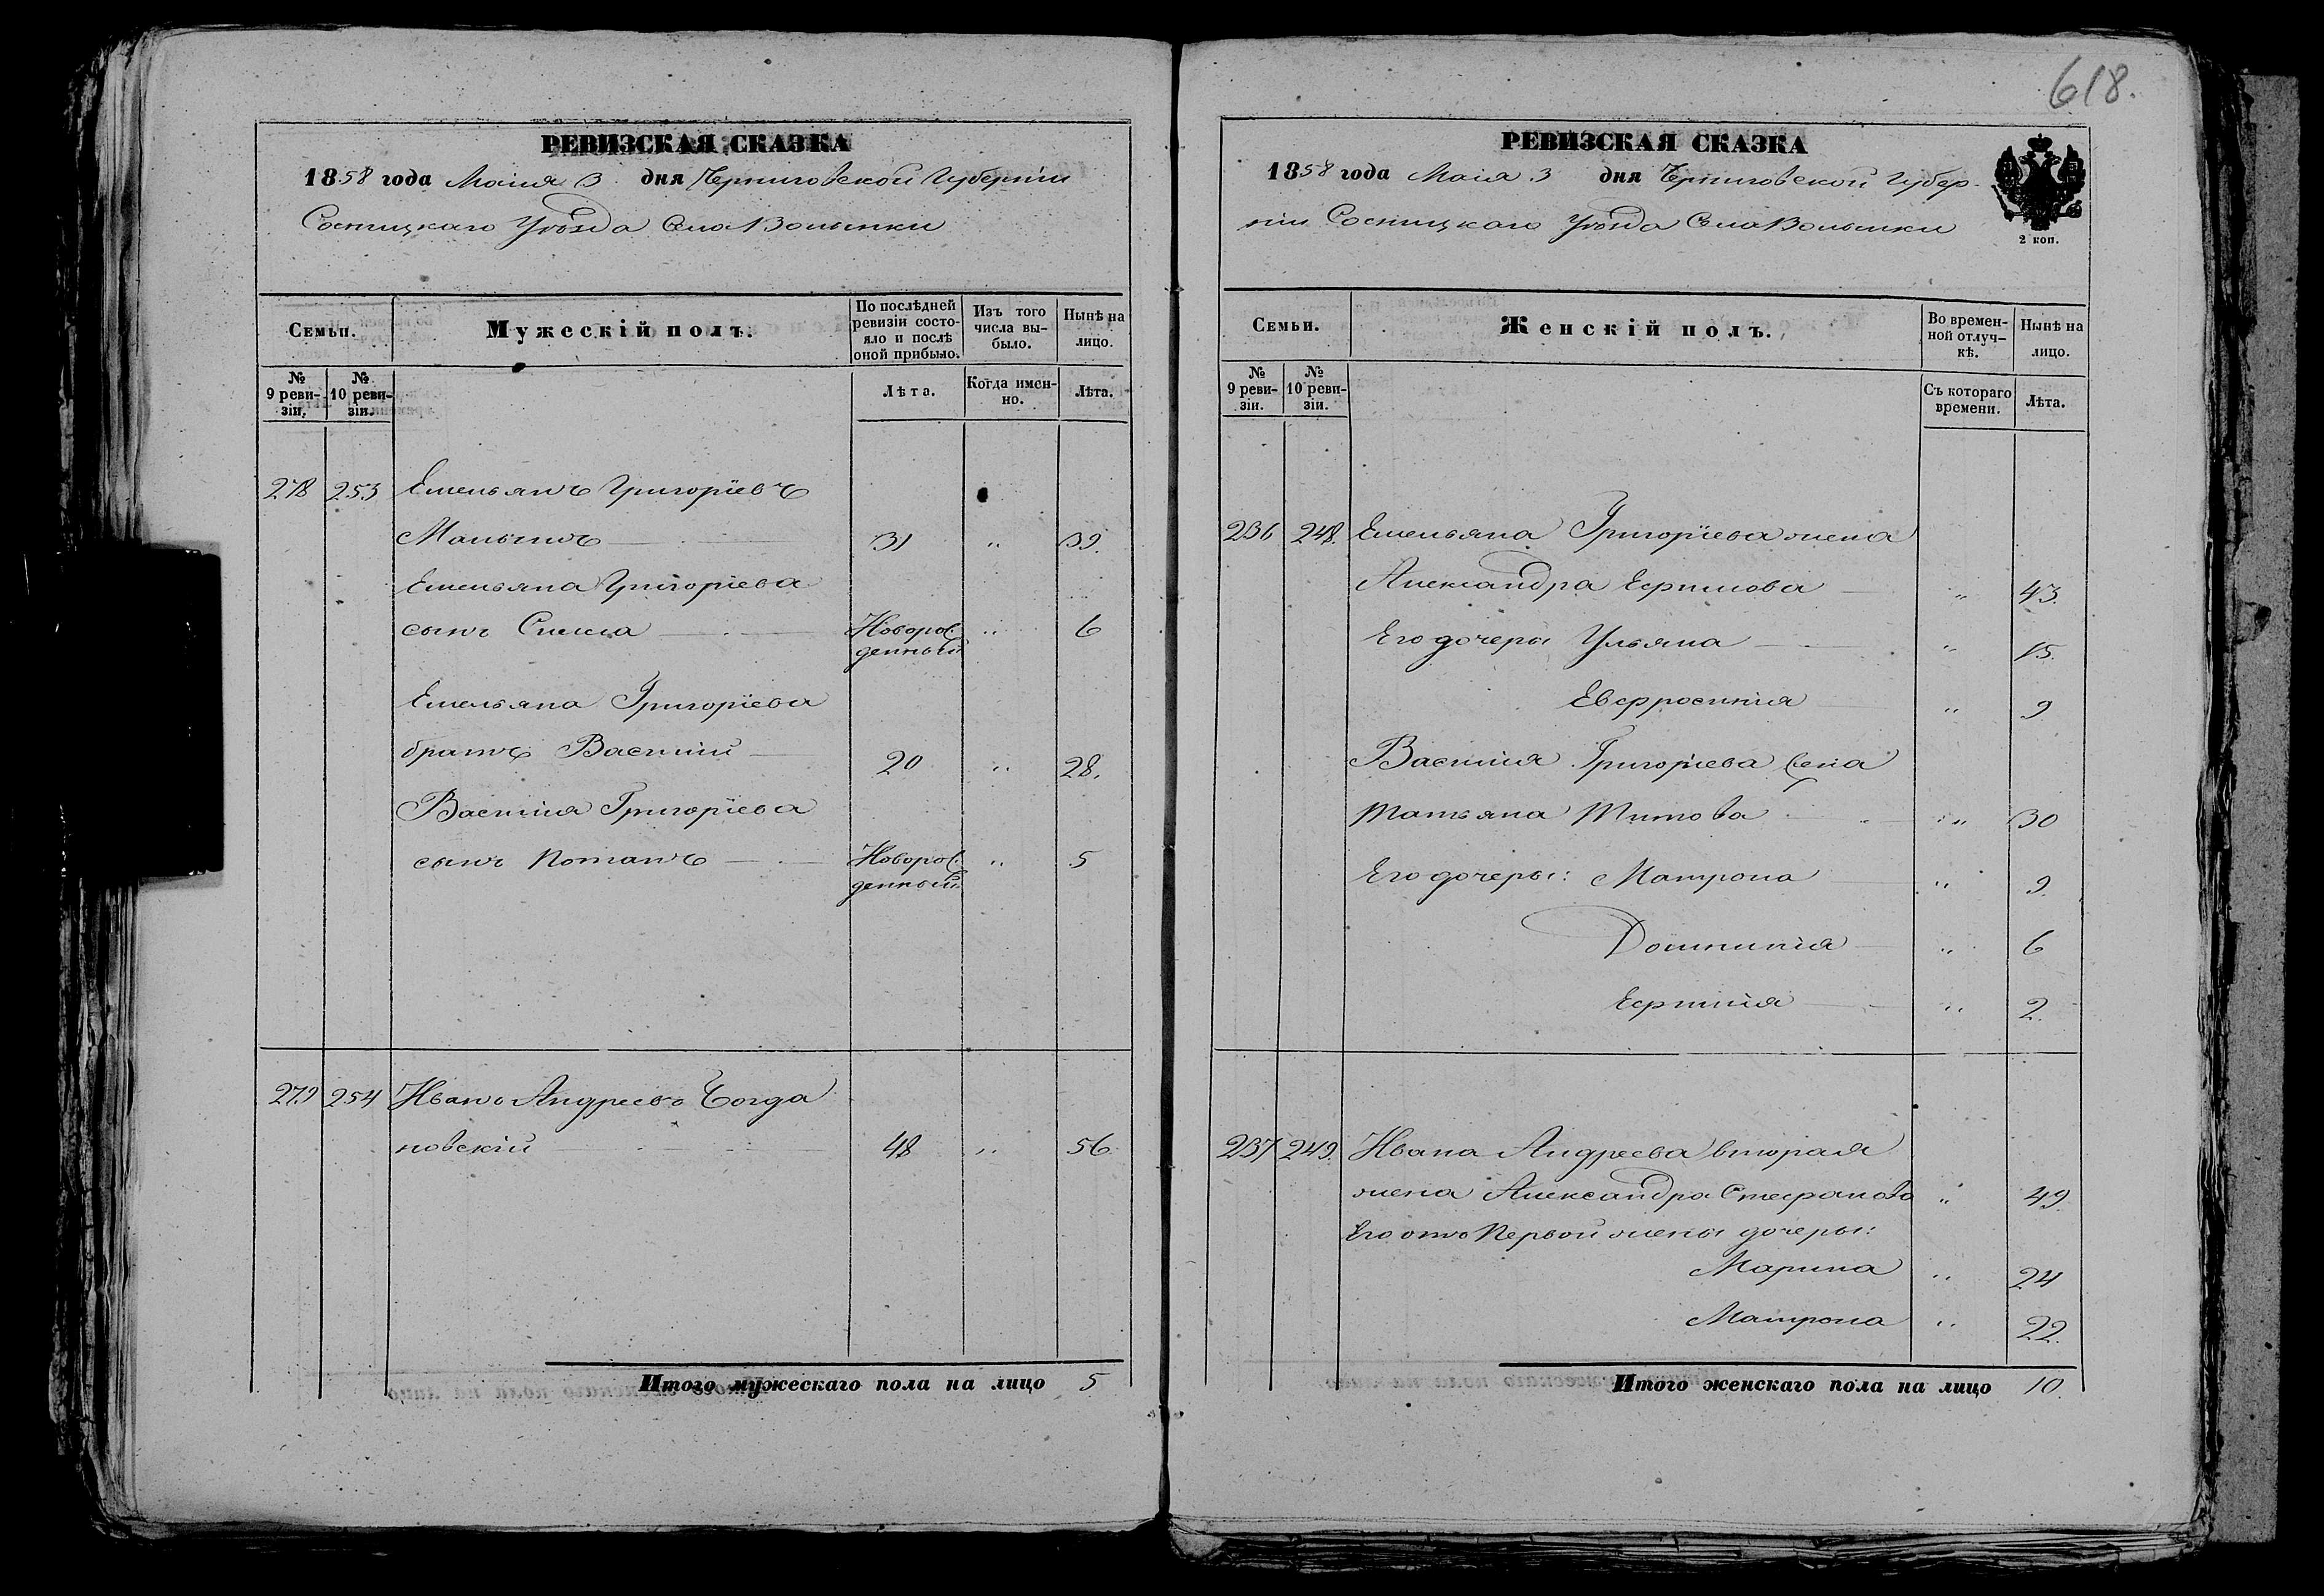 618.
РЕВИЗСКАЯ СКАЗКА
1858 года Маія 3 дня Черниговской Губерніи
Сосницкаго Уѣзда Села Волынки
Семьи.
Мужескій полъ.
По послѣдней ревизіи состояло и послѣ оной прибыло.
Изъ того числа выбыло.
Нынѣ на лицо.
№ 9 ревизіи.
№ 10 ревизіи.
Лѣта.
Когда именно.
Лѣта.
278 253 Емельянъ Григоріевъ
31 „ 39.
Емельяна Григоріева
сынъ Новорож- „ 6
денный
Емельяна Григоріева
братъ Василій 20 „ 28.
Василія Григоріева
сынъ Потапъ Новорож- „ 5
денный
279 254 Иванъ Андреевъ Богда
новскій 48 „ 56
Итого мужескаго пола на лицо 5
РЕВИЗСКАЯ СКАЗКА
1858 года Маія 3 дня Черниговской Губер-
ніи Сосницкаго Уѣзда Села Волынки
2 коп.
Семьи.
Женскій полъ.
Во временной отлучкѣ.
Нынѣ на лицо.
№ 9 ревизіи.
№ 10 ревизіи.
Съ котораго времени.
Лѣта.
236 248. Емельяна Григоріева жена
Александра Ефимова „ 43.
Его дочеры Ульяна „ 15.
Евфросинія „ 9
Василія Григоріева жена
Татьяна Титова „ 30
Его дочеры: Матрона „ 9.
Домникія „ 6
Ефимія „ 2.
237 249. Ивана Андреева вторая
жена Александра Стефанова „ 49.
Его отъ Первой жены дочеры:
Марина „ 24
Матрона „ 22.
Итого женскаго пола на лицо 10.